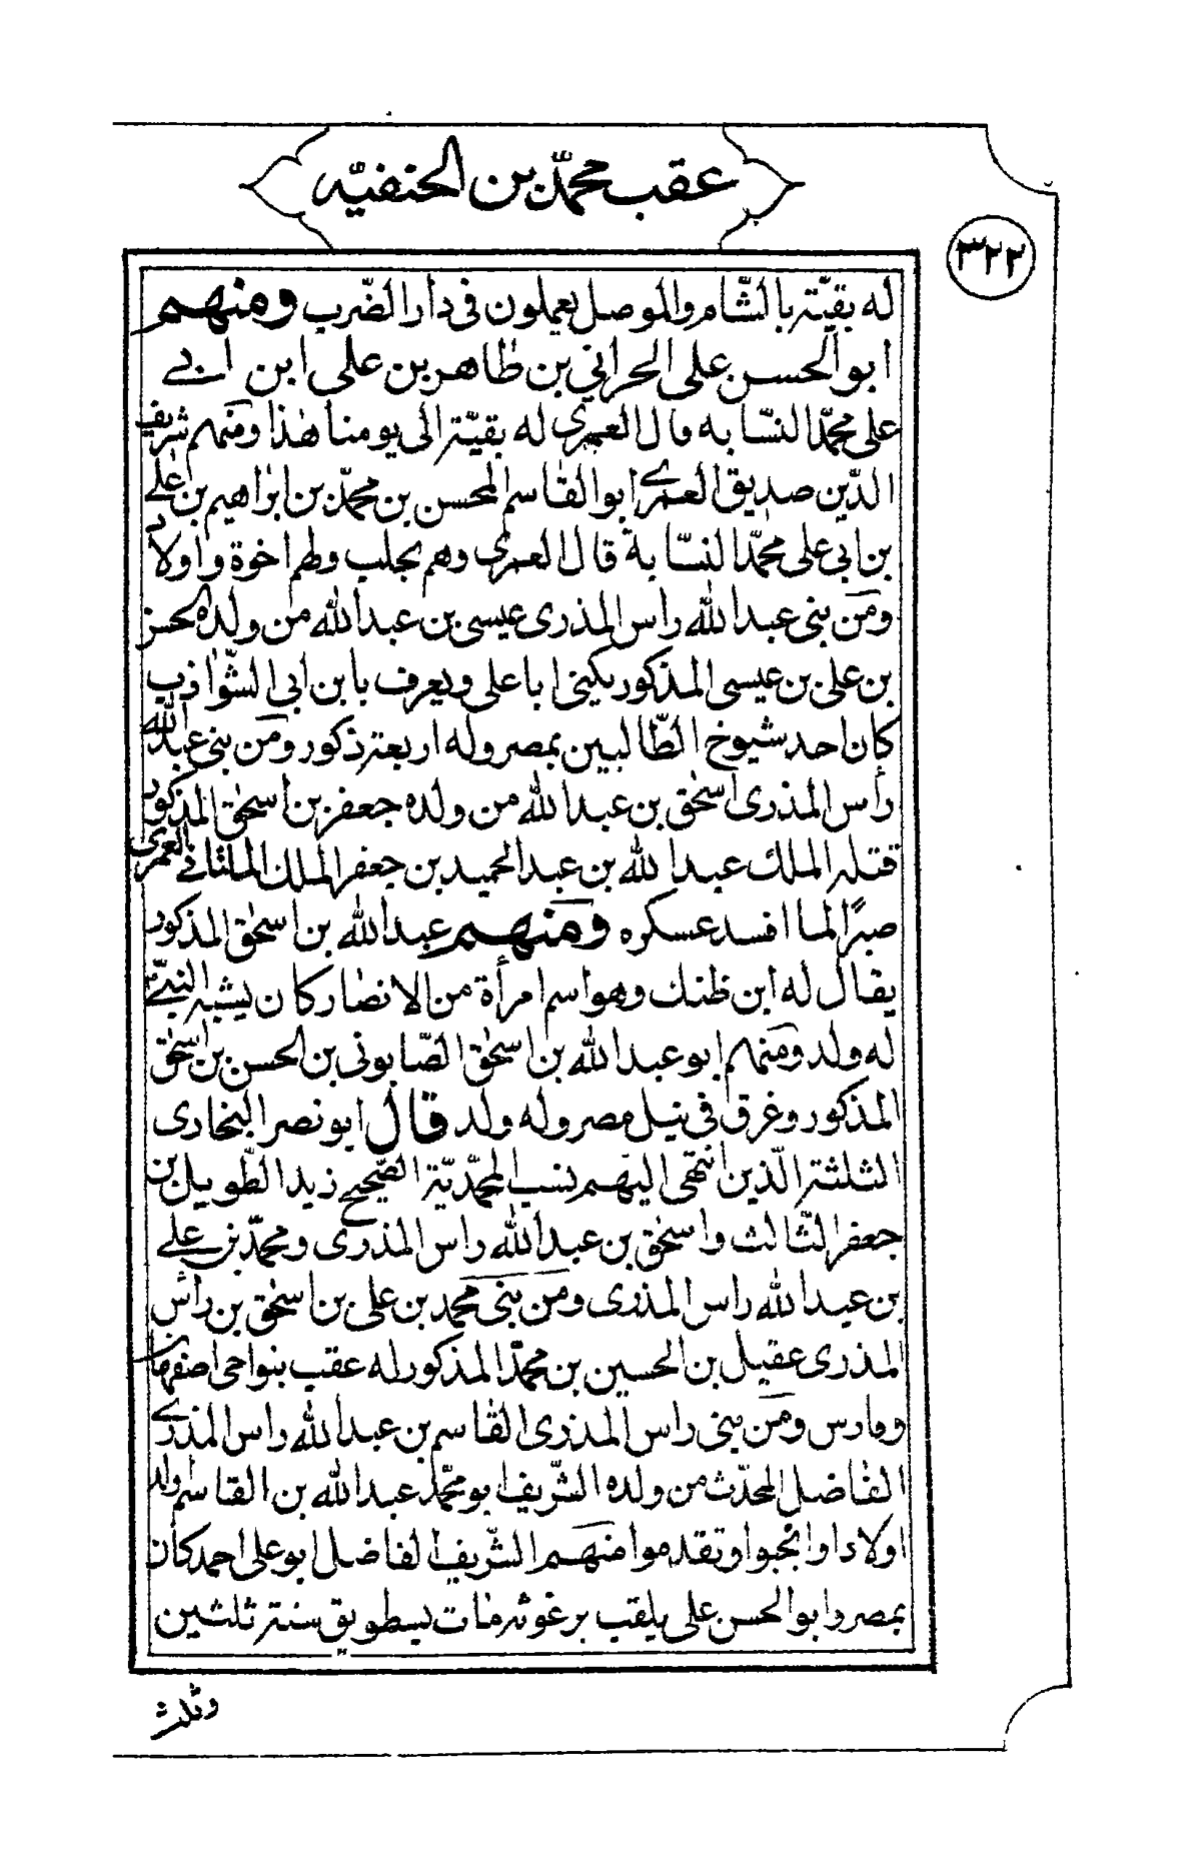 عقب محمّد بن الحنفيّه
٣٢٢
له بقيّة بالشّام والموصل يعملون فى دار الضّرب ومنهم
ابو الحسن على الحراني بن طاهر بن على ابن ابي
على محمّد النسّابه قال العمرى له بقيّة الى يومنا هذا ومنهم شريف
الدّين صديق العمرى ابو القاسم المحسن بن محمّد بن ابراهيم بن على
بن ابى على محمّد النسّابة قال العمرى وهم بحلب ولهم اخوة واولاد
ومن بنى عبد الله راس المذرى عيسى بن عبد الله من ولده الحسن
بن على بن عيسى المذكور يكنى ابا على ويعرف بابن ابى الشّوارب
كان احد شيوخ الطّالبيين بمصر وله اربعة ذكور ومن بنى عبد الله
رأس المذرى اسحٰق بن عبد الله من ولده جعفر بن اسحٰق المذكور
قتله الملك عبد الله بن عبد الحميد بن جعفر الملك الملتانى العمرى
صبرًا لما افسد عسكره ومنهم عبد الله بن اسحٰق المذكور
يقال له ابن ظنك وهو اسم امرأة من الانصار كان يشبه النبىّ
له ولد ومنهم ابو عبد الله بن اسحٰق الصّابونى بن الحسن بن اسحٰق
المذكور وغرق فى نيل مصر وله ولد قال ابو نصر البخارى
الثلثة الّذين انتهى اليهم نسب المحمّديّة الصّحيح زيد الطّويل بن
جعفر الثّالث واسحٰق بن عبد الله راس المذرى ومحمّد بن على
بن عبد الله راس المذرى ومن بنى محمد بن على بن اسحٰق بن رأس
المذرى عقيل بن الحسين بن محمّد المذكور له عقب بنواحى اصفهان
وفارس ومن بنى راس المذرى القاسم بن عبد الله راس المذرى
الفاضل المحدّث من ولده الشّريف ابو محمّد عبد الله بن القاسم ولد
اولادا وانجبوا وتقدموا منهم الشّريف الفاضل ابو على احمد كان
بمصر وابو الحسن على يلقب برغوثه مات بسطويق سنة ثلثين
وثلث